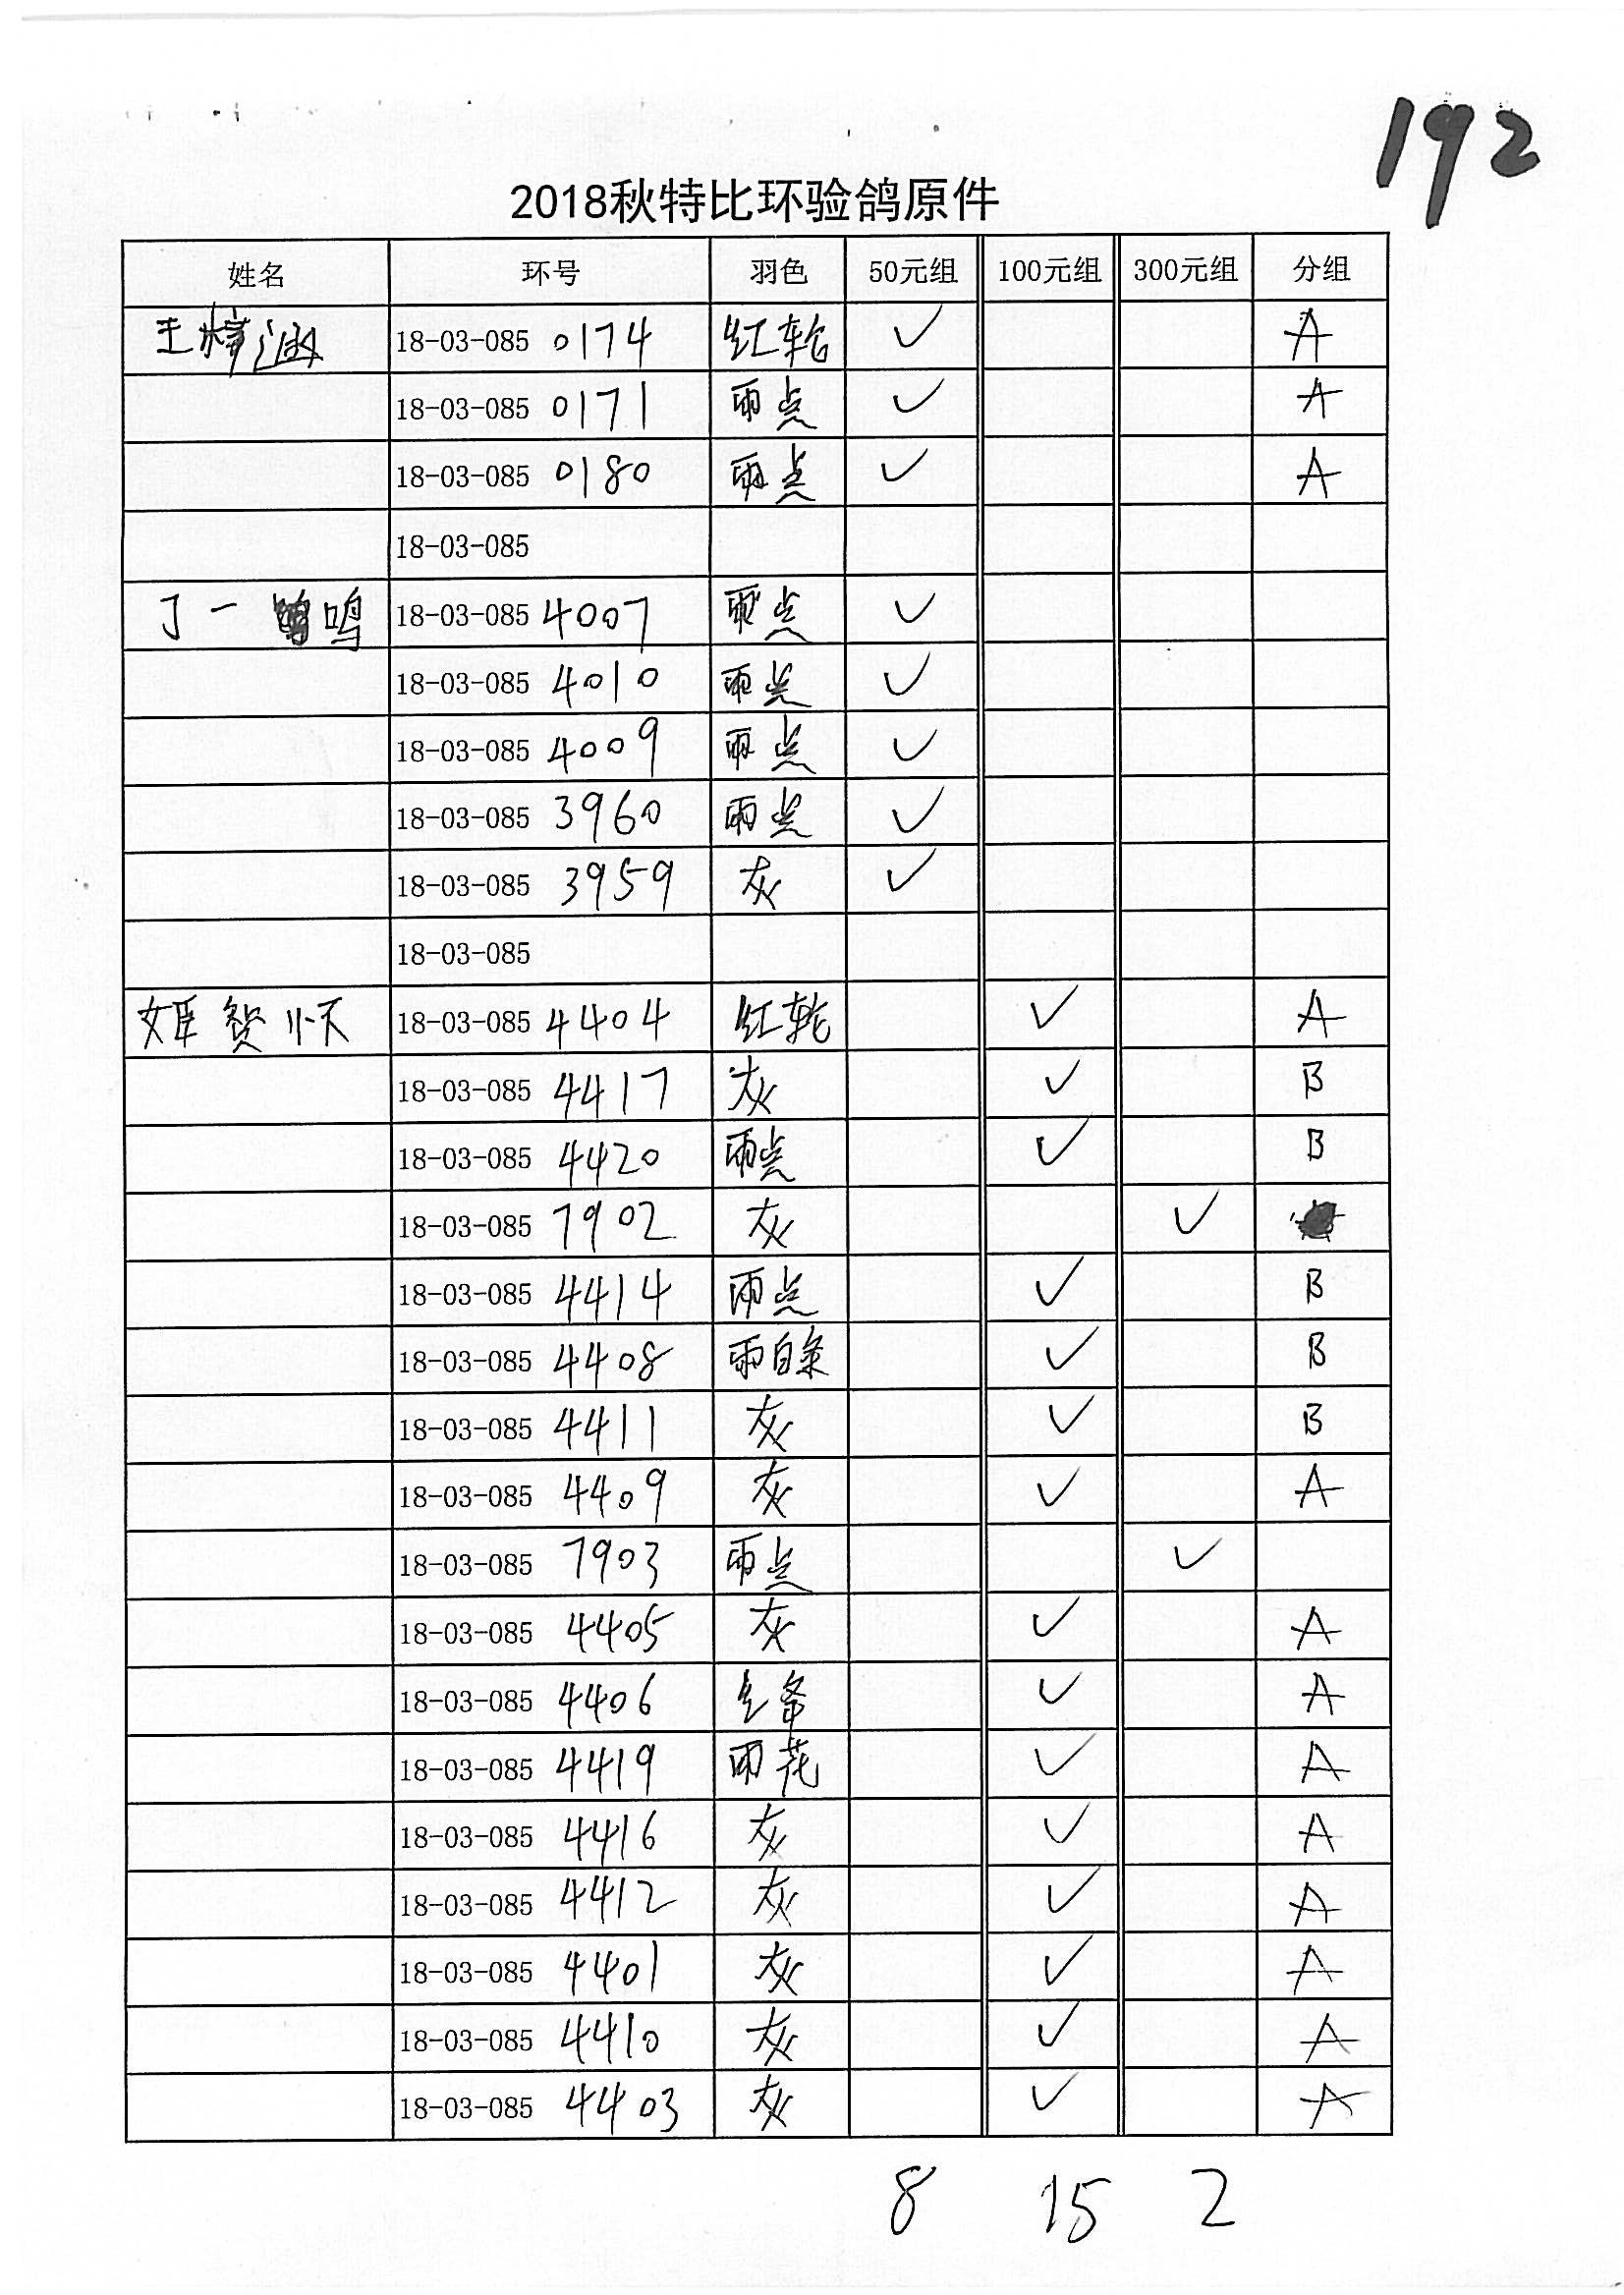 192
2018秋特比环验鸽原件
姓名 环号 羽色 50元组 100元组 300元组 分组
王梓涵 18-03-085 0174 红轮 ✓ A
18-03-085 0171 雨点 ✓ A
18-03-085 0180 雨点 ✓ A
18-03-085
丁一鸣 18-03-085 4007 雨点 ✓
18-03-085 4010 雨点 ✓
18-03-085 4009 雨点 ✓
18-03-085 3960 雨点 ✓
18-03-085 3959 灰 ✓
18-03-085
姬贺怀 18-03-085 4404 红轮 ✓ A
18-03-085 4417 灰 ✓ B
18-03-085 4420 雨点 ✓ B
18-03-085 7902 灰 ✓
18-03-085 4414 雨点 ✓ B
18-03-085 4408 雨白条 ✓ B
18-03-085 4411 灰 ✓ B
18-03-085 4409 灰 ✓ A
18-03-085 7903 雨点 ✓
18-03-085 4405 灰 ✓ A
18-03-085 4406 ✓ A
18-03-085 4419 雨花 ✓ A
18-03-085 4416 灰 ✓ A
18-03-085 4412 灰 ✓ A
18-03-085 4401 灰 ✓ A
18-03-085 4410 灰 ✓ A
18-03-085 4403 灰 ✓ A
8 15 2